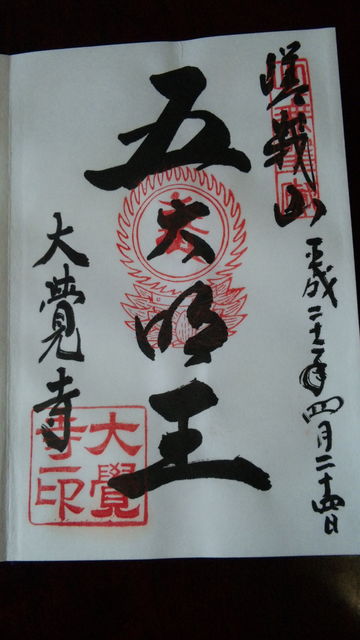 嵯峨山
平成二十二年四月二十四日
五大明王
大覺寺
大覺
寺印